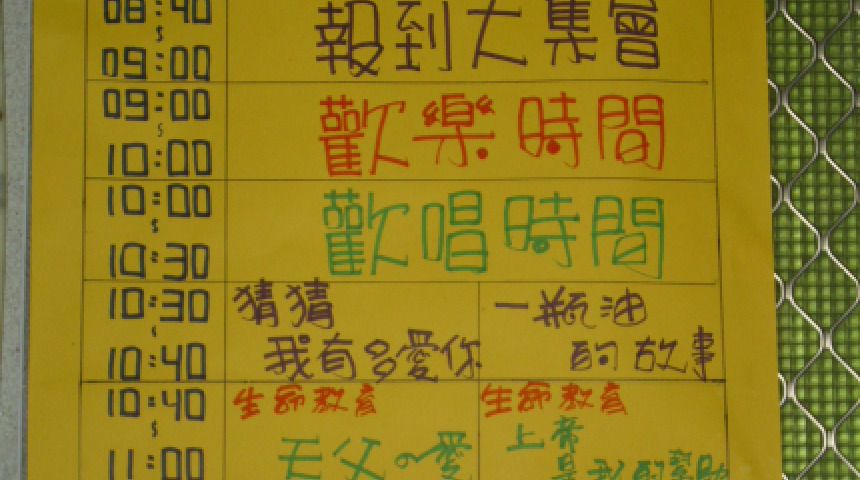 08:40
~
09:00
報到大集會
09:00
~
10:00
歡樂時間
10:00
~
10:30
歡唱時間
10:30
~
10:40
猜猜
我有多愛你
一瓶油
的故事
10:40
~
11:00
生命教育
天父の愛
生命教育
上帝
是我的幫助